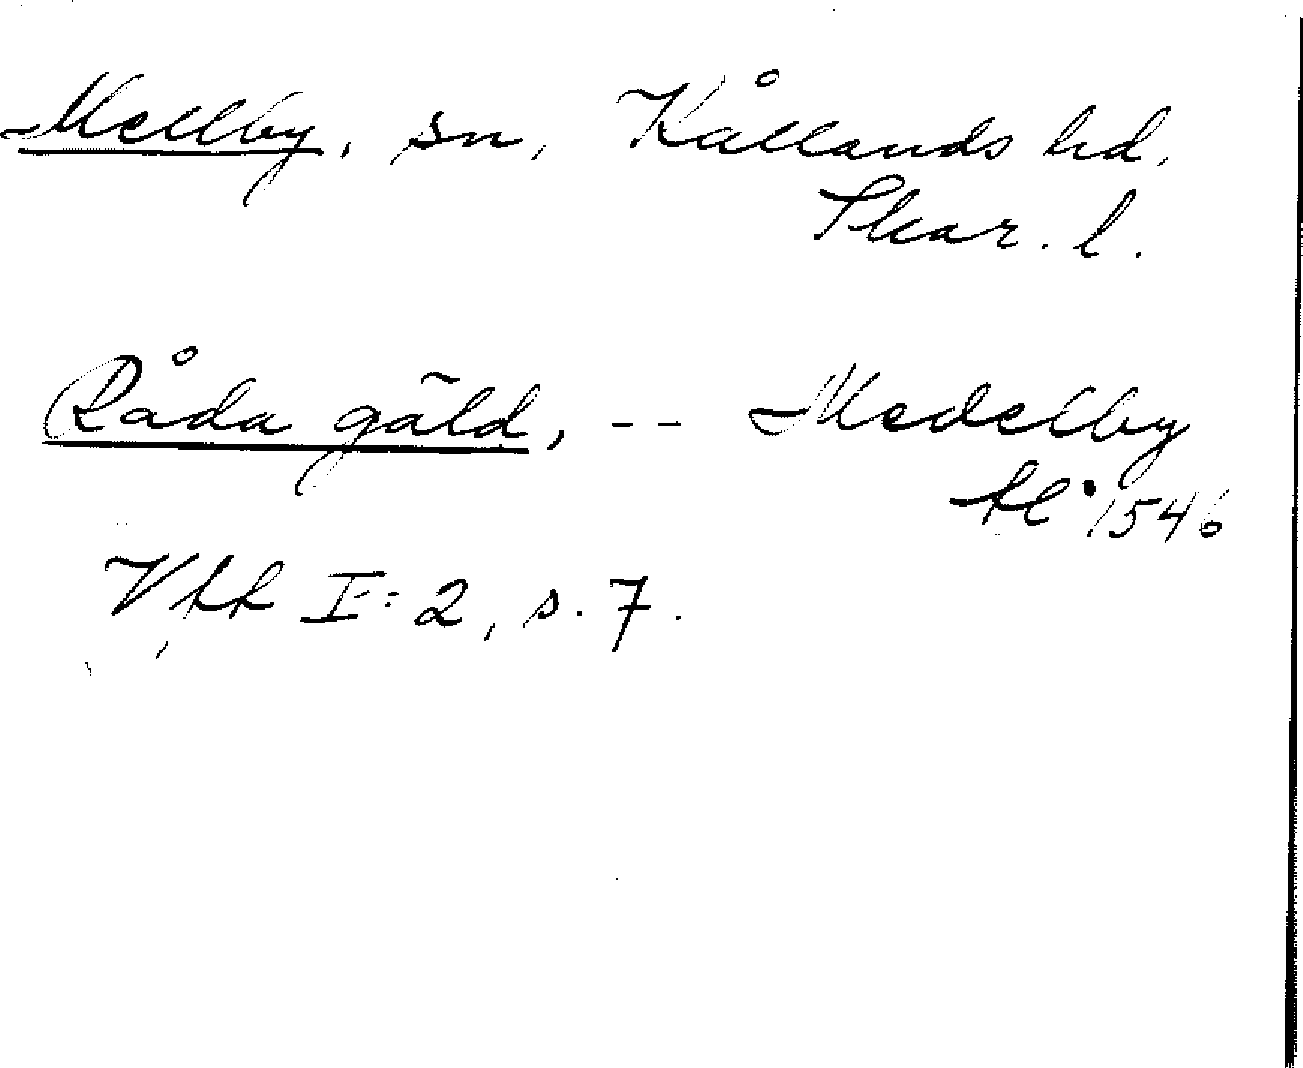 Mellby, sn, Kållands hd,
Skar. l.
Råda gäld, -- Medelby
1546
Vkk I:2, s. 7.